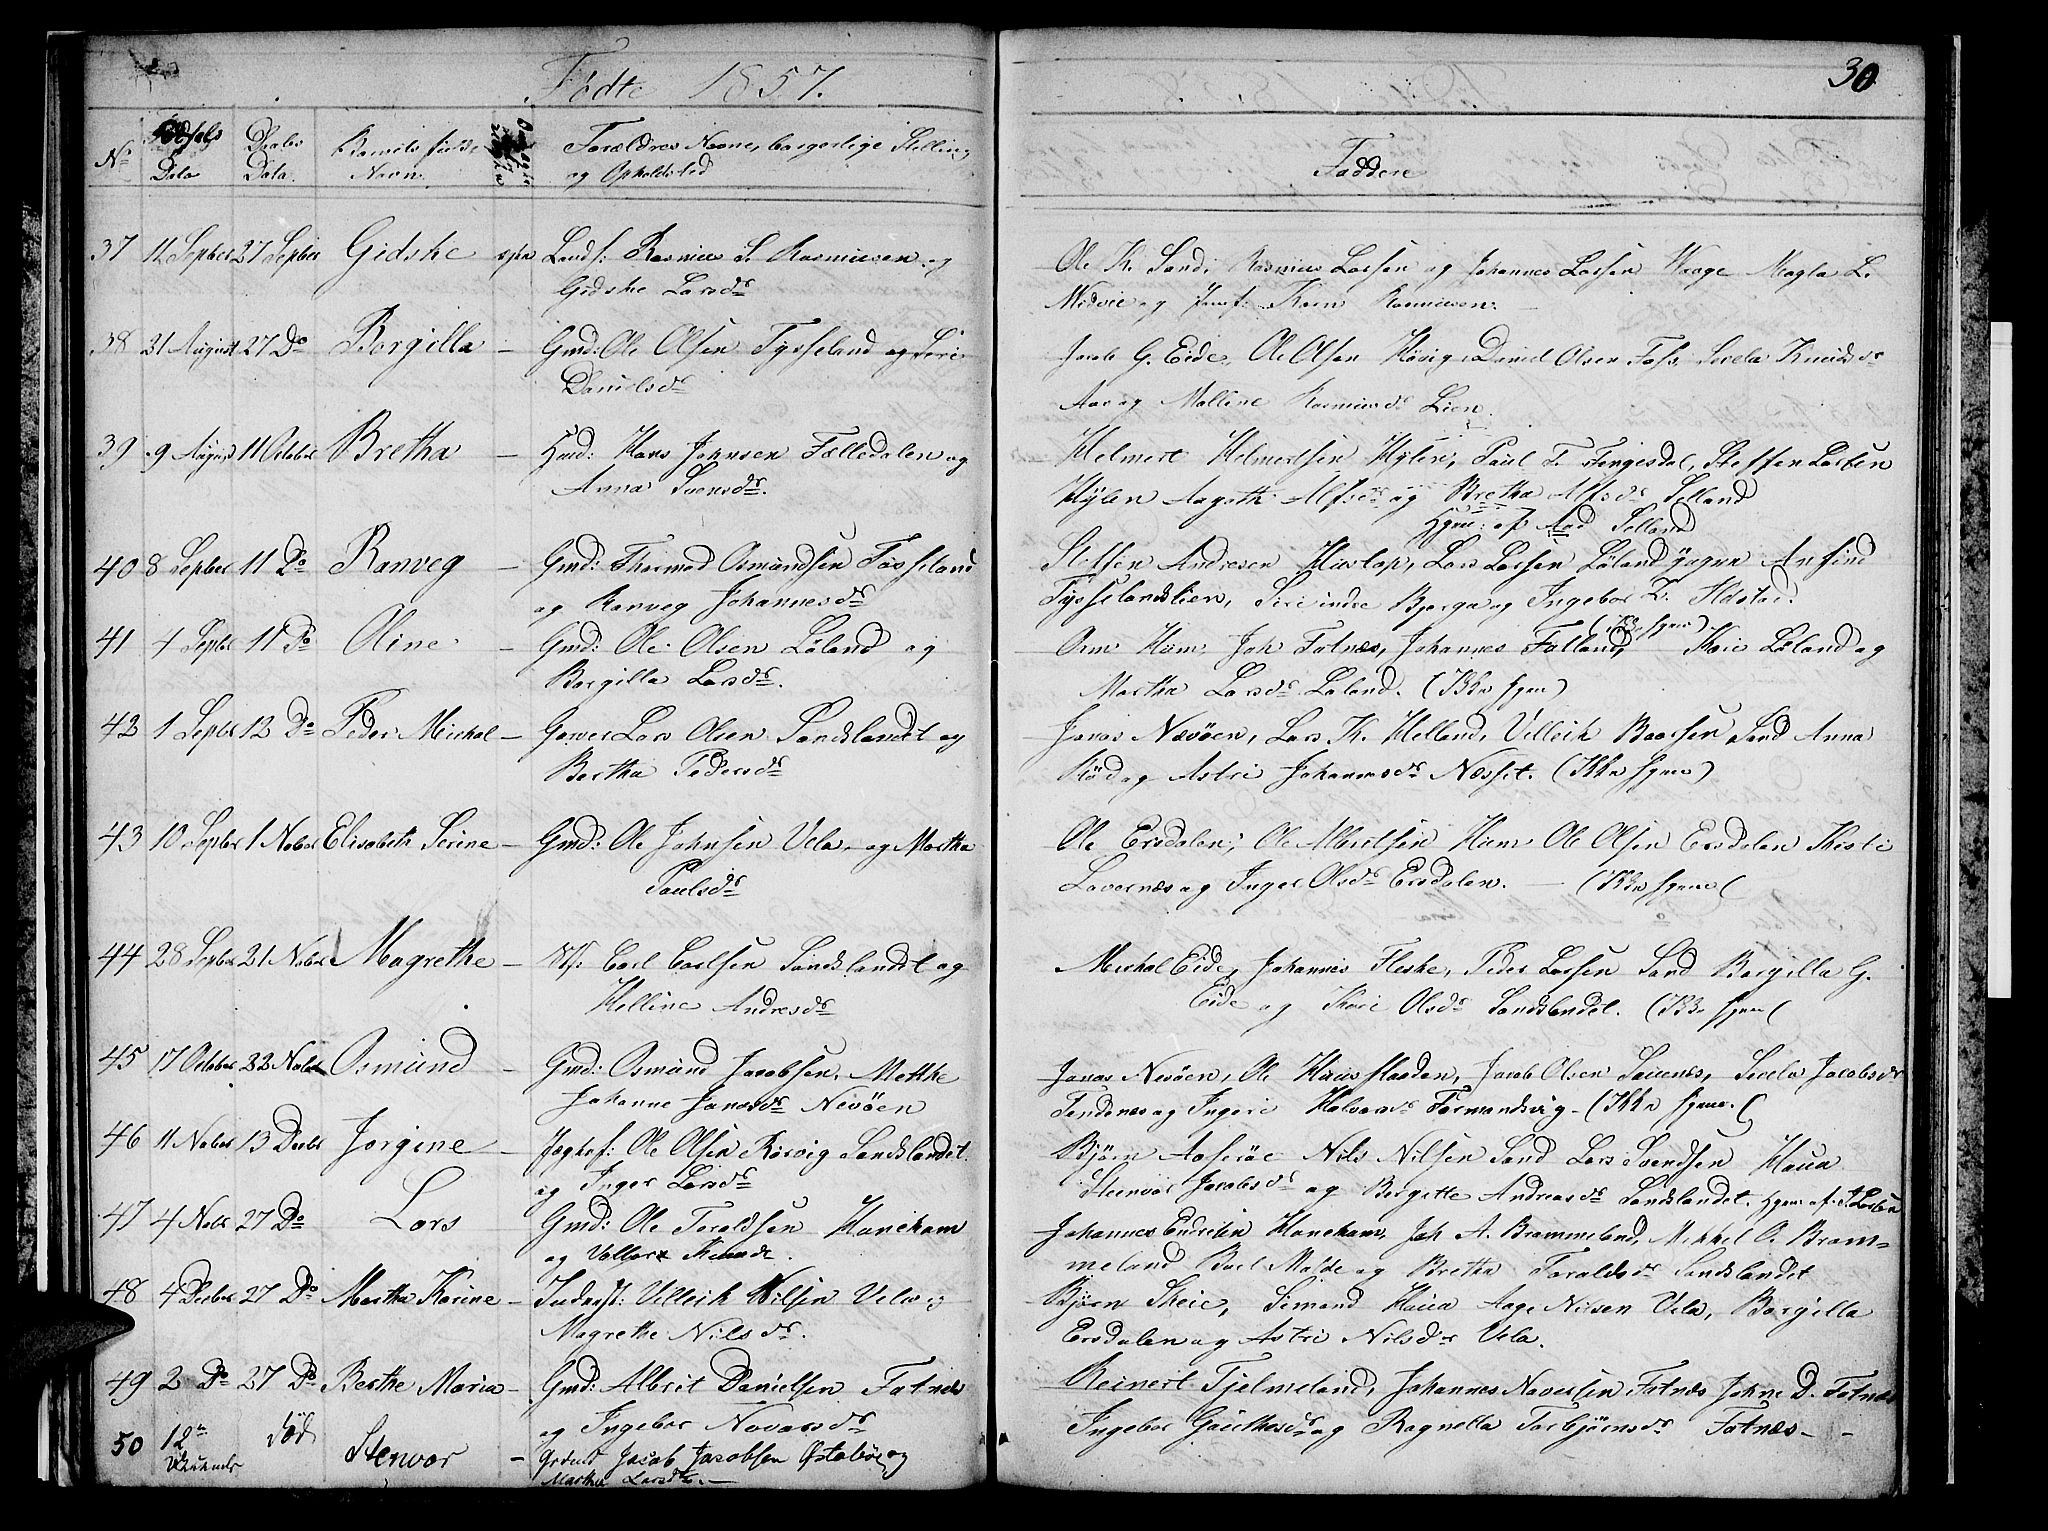 Fødte 1857.
30
No
Fødsels Dato
Daabs Data.
Barnets fulde Navn.
Forældres Navne, borgerlige Stilling og Opholdsted
Faddere
37 11 Sepber 27 Sepber Gidske Lands: Rasmus S. Rasmusen og
Gidske Larsdr
Ole K. Sand, Rasmus Larsen og Johannes Larsen Waage Magla L.
Midvie og Jomf: Karn Rasmusen.
38 31 August 27 Do Borgilla — Gmd: Ole Olsen Tysseland og Siri
Danielsdr
Jacob G. Eide, Ole Olsen Høivig, Daniel Olsen Foss, Sivela Knudsdr
Aas og Malline Rasmusdr Lien.
39 9 August 11 October Bretha — Hmd: Hans Johnsen Fælledalen og
Anna Svensdr.
Helmert Helmertsen Hylen, Paul T. Tengesdal, Steffen Larsen
Hylen Aagoth Alfsdr og Bretha Alfsdr Selland
Hgm: af Aad Selland
40 8 Sepber 11 Do Ranveg — Gmd: Thormod Osmundsen Tysseland
og Ranveg Johannesdr
Steffen Andresen Hustop, Lars Larsen Løland yngre Anfind
Tysselandslien, Siri indre Bjerga og Ingebor L. Ilstad.
41 4 Sepber 11 Do Oline — Gmd: Ole Olsen Løland og
Borgilla Larsdr.
Orm Ham Joh Fatnæs, Johannes Følland, Kari Løland og
Martha Larsdr Løland. (Ikke hgm)
42 1 Sepber 12 Do Peder Michal — Garver Lars Olsen Sandslandet og
Bertha Pedersdr
Jonas Nævøen, Lars K. Helland, Velleik Baarsen Sand Anna
Rød og Astri Johannesdr Næsset. (Ikke hgm)
43 10 Sepber 1 Nober Elisabeth Serine — Gmd: Ole Johnsen Vela, og Martha
Paulsdr
Ole Ersdalen, Ole Albretsen Ham Ole Olsen Ersdalen Kisti
Lovernæs og Inger Olsdr Ersdalen. — (Ikke hgm)
44 28 Sepber 21 Nober Magrethe — Carl Carlsen Sandslandet og
Helline Andresdr
Michal Eide, Johannes Fleske, Peder Larsen Sand Borgilla G.
Eide og Kari Olsdr Sandslandet. (Ikke hgm)
45 17 October 22 Nober Osmund — Gmd: Osmund Jacobsen, Methe
Johanne Jonasdr Nevøen
Jonas Nevøen, Ole Hausstaaden, Jacob Olsen Sauenes, Sivela Jacobsdr
Tendenæs og Ingeri Halvorsdr Tormandsvig. (Ikke hgm.)
46 11 Nober 13 Decbr Jorgine — Jægtsf: Ole Olsen Rørvig Sandslandet.
og Inger Larsdr
Bjørn Aaserøe Nils Nilsen Sand Lars Svendsen Haua
Steenvor Jacobsdr og Bergitte Andreasdr Sandslandet. Hgm: af S. Larsen
47 4 Nobr 27 Do Lars Gmd: Ole Toraldsen Haneham
og Vellor Knudsdr.
Johannes Endresen Haneham, Joh A. Brommeland, Mikkel O. Brom-
meland Boel Molde og Bretha Toraldsdr Sandslandet
48 4 Decber 27 Do Martha Karine — Inderst: Velleik Nilsen Vela og
Magrethe Nilsdr.
Bjørn Skeie, Simond Haua Aage Nilsen Vela, Borgilla
Ersdalen og Astri Nilsdr Vela.
49 2 Do 27 Do Berthe Maria — Gmd: Albret Danielsen Fatnæs
og Ingebor Navarsdr
Reinert Tjelmeland, Johannes Naversen Fatnæs John D. Fatnæs
Ingebor Gauthesdr og Ragnella Torbjørnsdr Fatnæs — —
50 12te Død Stenvor — Jacob Jacobsen Østebøe og
Martha Larsdr. —